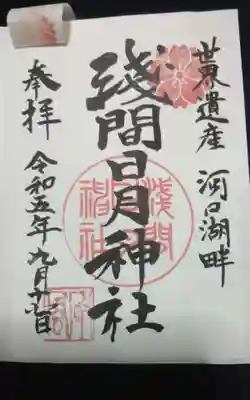 世界遺産 河口湖畔
淺間日月神社
奉拝 令和五年九月十七日
淺間
神社